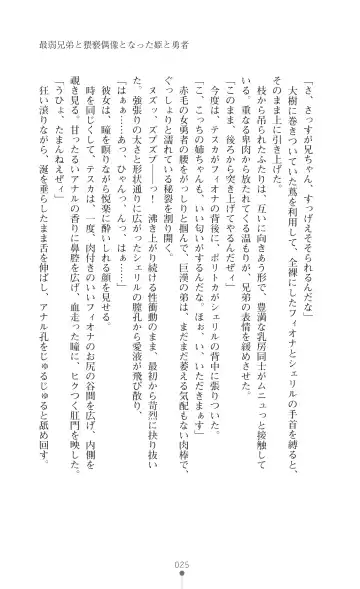 最弱兄弟と猥褻偶像となった姫と勇者
「さ、さっすが兄ちゃん、すっげえそそられるんだな」
大樹に巻きついていた蔦を利用して、全裸にしたフィオナとシェリルの手首を縛ると、
太い枝に引き上げた。
枝から吊られたふたりは、互いに向きあう形で、豊満な乳房同士がムニュっと接触して
いる。重なる卑肉から放たれてくる温もりが、兄弟の表情を緩めさせた。
「このまま、後ろから突き上げてやるんだぜィ」
今度は、テスカがフィオナの背後に、ポリトカがシェリルの背中に張りついた。
「こ、こっちの姉ちゃんも、いい匂いがするんだな。ほぉ、い、いただきまぁす」
赤毛の女勇者の腰をがっしりと掴んで、巨漢の弟は、まだまだ萎える気配もない肉棒で、
ぐっしょりと濡れている秘裂を割り開く。
ヌズッ、ズブズブ――っ！　沸き上がり続ける性衝動のまま、最初から苛烈に抉り抜い
た。強張りの太さと形状通りに広がったシェリルの膣孔から愛液が飛び散り、
「はぁぁ……あっ、ひゃんっ、んっ、はぁ……」
彼女は、瞳を瞑りながら悦楽に酔いしれる顔を見せる。
時を同じくして、テスカは、一度、肉付きのいいフィオナのお尻の谷間を広げ、内側を
覗き見る。甘ったるいアナルの香りに鼻腔を広げ、血走った瞳に、ヒクつく肛門を映した。
「うひょ、たまんねえぜィ」
狂い滾りながら、涎を垂らしたまま舌を伸ばし、アナル孔をじゅるじゅると舐め回す。
025